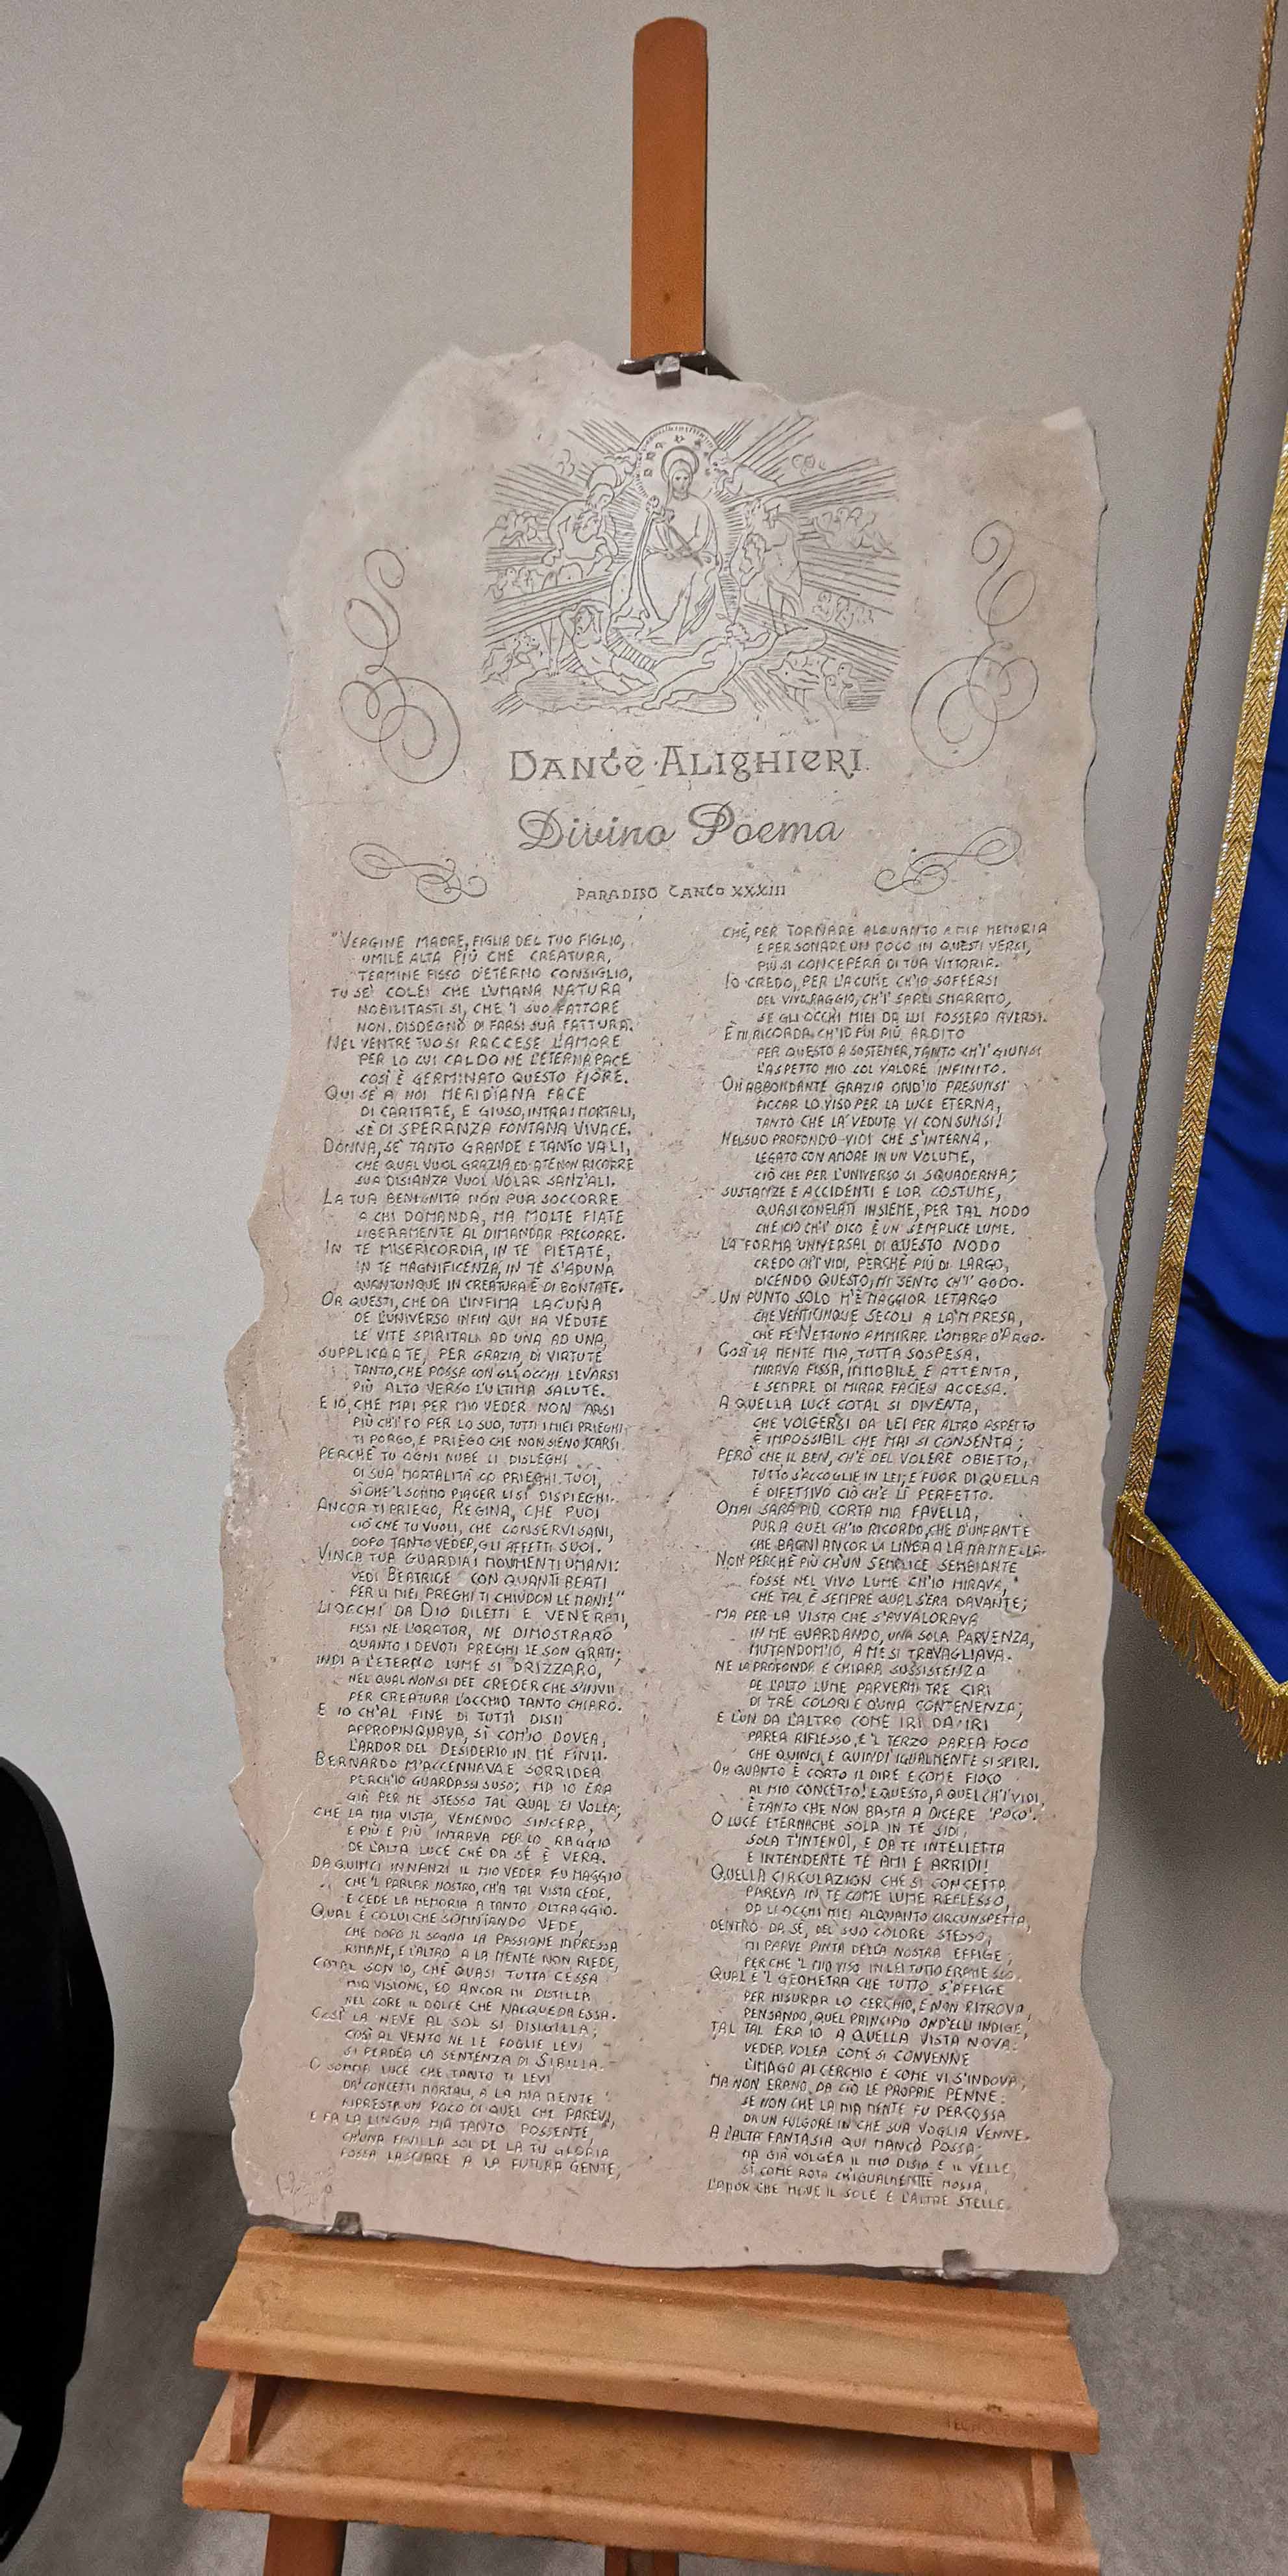 DANTE ALIGHIERI
Divino Poema
PARADISO CANTO XXXIII
"VERGINE MADRE, FIGLIA DEL TUO FIGLIO,
UMILE ALTA PIÙ CHE CREATURA,
TERMINE FISSO D'ETERNO CONSIGLIO,
TU SE' COLEI CHE L'UMANA NATURA
NOBILITASTI SI, CHE 'L SUO FATTORE
NON DISDEGNÒ DI FARSI SUA FATTURA.
NEL VENTRE TUO SI RACCESE L'AMORE
PER LO CUI CALDO NE L'ETERNA PACE
COSÌ È GERMINATO QUESTO FIORE.
QUI SE' A NOI MERIDIANA FACE
DI CARITATE, E GIUSO, INTRA I MORTALI,
SÈ DI SPERANZA FONTANA VIVACE.
DONNA, SE' TANTO GRANDE E TANTO VALI,
CHE QUAL VUOL GRAZIA ED A TE NON RICORRE
SUA DISIANZA VUOL VOLAR SANZ'ALI.
LA TUA BENIGNITÀ NON PUR SOCCORRE
A CHI DOMANDA, MA MOLTE FIATE
LIBERAMENTE AL DIMANDAR PRECORRE.
IN TE MISERICORDIA, IN TE PIETATE,
IN TE MAGNIFICENZA, IN TE S'ADUNA
QUANTUNQUE IN CREATURA È DI BONTATE.
OR QUESTI, CHE DA L'INFIMA LACUNA
DE L'UNIVERSO INFIN QUI HA VEDUTE
LE VITE SPIRITALI AD UNA AD UNA,
SUPPLICA A TE, PER GRAZIA, DI VIRTUTE
TANTO, CHE POSSA CON GLI OCCHI LEVARSI
PIÙ ALTO VERSO L'ULTIMA SALUTE.
E IO, CHE MAI PER MIO VEDER NON ARSI
PIÙ CH'I' FO PER LO SUO, TUTTI I MIEI PRIEGHI
TI PORGO, E PRIEGO CHE NON SIENO SCARSI.
PERCHÈ TU OGNI NUBE LI DISLEGHI
DI SUA MORTALITÀ CO PRIEGHI TUOI,
SÌ CHE 'L SOMMO PIACER LI SI DISPIEGHI.
ANCOR TI PRIEGO, REGINA, CHE PUOI
CIÒ CHE TU VUOLI, CHE CONSERVI SANI,
DOPO TANTO VEDER, GLI AFFETTI SUOI.
VINCA TUA GUARDIA I MOVIMENTI UMANI:
VEDI BEATRICE CON QUANTI BEATI
PER LI MIEI PREGHI TI CHIUDON LE MANI!"
LI OCCHI DA DIO DILETTI E VENERATI,
FISSI NE L'ORATOR, NE DIMOSTRARO
QUANTO I DEVOTI PREGHI LE SON GRATI;
INDI A L'ETERNO LUME SI DRIZZARO,
NEL QUAL NON SI DEE CREDER CHE S'INVII
PER CREATURA L'OCCHIO TANTO CHIARO.
E IO CH'AL FINE DI TUTTI DISII
APPROPINQUAVA, SÌ COM'IO DOVEA,
L'ARDOR DEL DESIDERIO IN ME FINII.
BERNARDO M'ACCENNAVA E SORRIDEA
PERCH'IO GUARDASSI SUSO; MA IO ERA
GIÀ PER ME STESSO TAL QUAL EI VOLEA;
CHE LA MIA VISTA, VENENDO SINCERA,
E PIÙ E PIÙ INTRAVA PER LO RAGGIO
DE L'ALTA LUCE CHE DA SÉ È VERA.
DA QUINCI INNANZI IL MIO VEDER FU MAGGIO
CHE 'L PARLAR NOSTRO, CH'A TAL VISTA CEDE,
E CEDE LA MEMORIA A TANTO OLTRAGGIO.
QUAL È COLUI CHE SOMNIANDO VEDE,
CHE DOPO IL SOGNO LA PASSIONE IMPRESSA
RIMANE, E L'ALTRO A LA MENTE NON RIEDE,
COTAL SON IO, CHE QUASI TUTTA CESSA
MIA VISIONE, ED ANCOR MI DISTILLA
NEL CORE IL DOLCE CHE NACQUE DA ESSA.
COSÌ LA NEVE AL SOL SI DISIGILLA;
COSÌ AL VENTO NE LE FOGLIE LEVI
SI PERDEA LA SENTENZA DI SIBILLA.
O SOMMA LUCE CHE TANTO TI LEVI
DA' CONCETTI MORTALI, A LA MIA MENTE
RIPRESTA UN POCO DI QUEL CHE PAREVI,
E FA LA LINGUA MIA TANTO POSSENTE,
CH'UNA FAVILLA SOL DE LA TU GLORIA
POSSA LASCIARE A LA FUTURA GENTE;
CHÈ, PER TORNARE ALQUANTO A MIA MEMORIA
E PER SONARE UN POCO IN QUESTI VERSI,
PIÙ SI CONCEPERÀ DI TUA VITTORIA.
IO CREDO, PER L'ACUME CH'IO SOFFERSI
DEL VIVO RAGGIO, CH'I' SAREI SMARRITO,
SE GLI OCCHI MIEI DA LUI FOSSERO AVERSI.
È MI RICORDA CH'IO FUI PIÙ ARDITO
PER QUESTO A SOSTENER, TANTO CH'I' GIUNSI
L'ASPETTO MIO COL VALORE INFINITO.
OH ABBONDANTE GRAZIA OND'IO PRESUNSI
FICCAR LO VISO PER LA LUCE ETERNA,
TANTO CHE LA VEDUTA VI CONSUNSI!
NEL SUO PROFONDO VIDI CHE S'INTERNA,
LEGATO CON AMORE IN UN VOLUME,
CIÒ CHE PER L'UNIVERSO SI SQUADERNA;
SUSTANZE E ACCIDENTI E LOR COSTUME,
QUASI CONFLATI INSIEME, PER TAL MODO
CHE CIÒ CH'I' DICO È UN SEMPLICE LUME.
LA FORMA UNIVERSAL DI QUESTO NODO
CREDO CH'I' VIDI, PERCHÈ PIÙ DI LARGO,
DICENDO QUESTO, MI SENTO CH'I' GODO.
UN PUNTO SOLO M'È MAGGIOR LETARGO
CHE VENTICINQUE SECOLI A LA MPRESA,
CHE FÈ NETTUNO AMMIRAR L'OMBRA D'ARGO.
COSÌ LA MENTE MIA, TUTTA SOSPESA,
MIRAVA FISSA, IMMOBILE E ATTENTA,
E SEMPRE DI MIRAR FACIESI ACCESA.
A QUELLA LUCE COTAL SI DIVENTA,
CHE VOLGERSI DA LEI PER ALTRO ASPETTO
È IMPOSSIBIL CHE MAI SI CONSENTA;
PERÒ CHE IL BEN, CH'È DEL VOLERE OBIETTO,
TUTTO S'ACCOGLIE IN LEI; E FUOR DI QUELLA
È DIFETTIVO CIÒ CH'È LÌ PERFETTO.
OMAI SARÀ PIÙ CORTA MIA FAVELLA,
PUR A QUEL CH'IO RICORDO, CHE D'UNFANTE
CHE BAGNI ANCOR LA LINGUA A LA MAMMELLA.
NON PERCHÈ PIÙ CH'UN SEMPLICE SEMBIANTE
FOSSE NEL VIVO LUME CH'IO MIRAVA,
CHE TAL È SEMPRE QUAL S'ERA DAVANTE;
MA PER LA VISTA CHE S'AVVALORAVA
IN ME GUARDANDO, UNA SOLA PARVENZA,
MUTANDOM'IO, A ME SI TRAVAGLIAVA.
NE LA PROFONDA E CHIARA SUSSISTENZA
DE L'ALTO LUME PARVERMI TRE GIRI
DI TRE COLORI E D'UNA CONTENENZA;
E L'UN DA L'ALTRO COME IRI DA IRI
PAREA RIFLESSO, E 'L TERZO PAREA FOCO
CHE QUINCI E QUINDI IGUALMENTE SI SPIRI.
OH QUANTO È CORTO IL DIRE E COME FIOCO
AL MIO CONCETTO! E QUESTO, A QUEL CH'I' VIDI,
È TANTO CHE NON BASTA A DICERE 'POCO'.
O LUCE ETERNA CHE SOLA IN TE SIDI,
SOLA T'INTENDI, E DA TE INTELLETTA
E INTENDENTE TE AMI E ARRIDI!
QUELLA CIRCULAZION CHE SI CONCETTA
PAREVA IN TE COME LUME REFLESSO,
DA LI OCCHI MIEI ALQUANTO CIRCUNSPETTA,
DENTRO DA SÉ, DEL SUO COLORE STESSO,
MI PARVE PINTA DELLA NOSTRA EFFIGE;
PER CHE 'L MIO VISO IN LEI TUTTO ERA MESSO.
QUAL È 'L GEOMETRA CHE TUTTO S'AFFIGE
PER MISURAR LO CERCHIO, E NON RITROVA,
PENSANDO, QUEL PRINCIPIO OND'ELLI INDIGE,
TAL TAL ERA IO A QUELLA VISTA NOVA:
VEDER VOLEA COME SI CONVENNE
L'IMAGO AL CERCHIO E COME VI S'INDOVA;
MA NON ERANO DA CIÒ LE PROPRIE PENNE:
SE NON CHE LA MIA MENTE FU PERCOSSA
DA UN FULGORE IN CHE SUA VOGLIA VENNE.
A L'ALTA FANTASIA QUI MANCÒ POSSA;
MA GIÀ VOLGEA IL MIO DISIO E IL VELLE,
SÌ COME ROTA CH'IGUALMENTE MOSSA,
L'AMOR CHE MOVE IL SOLE E L'ALTRE STELLE.